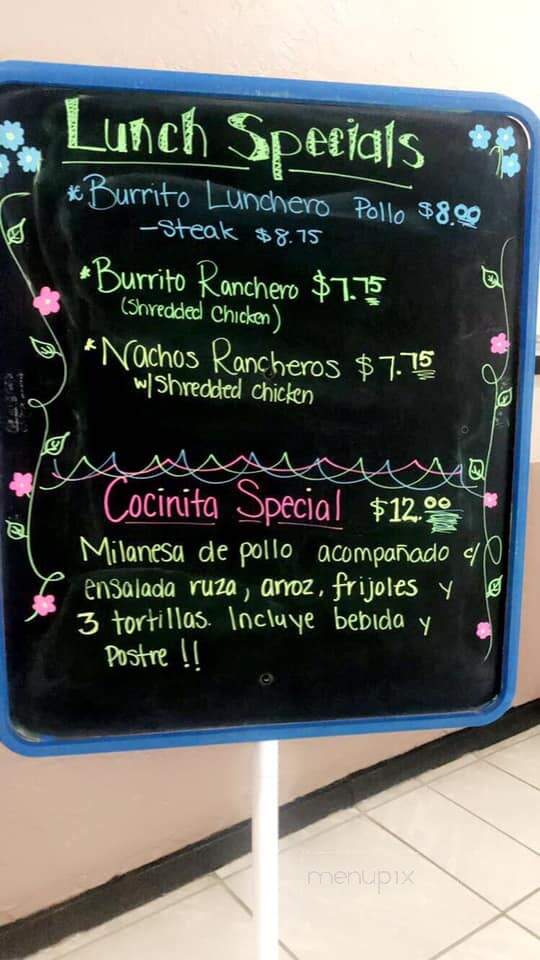 Lunch Specials
* Burrito Lunchero Pollo $8.00
- Steak $8.75
* Burrito Ranchero $7.75
(Shredded Chicken)
* Nachos Rancheros $7.75
w/ Shredded chicken
Cocinita Special $12.00
Milanesa de pollo acompañado c/
ensalada ruza, arroz, frijoles y
3 tortillas. Incluye bebida y
Postre !!
menupix